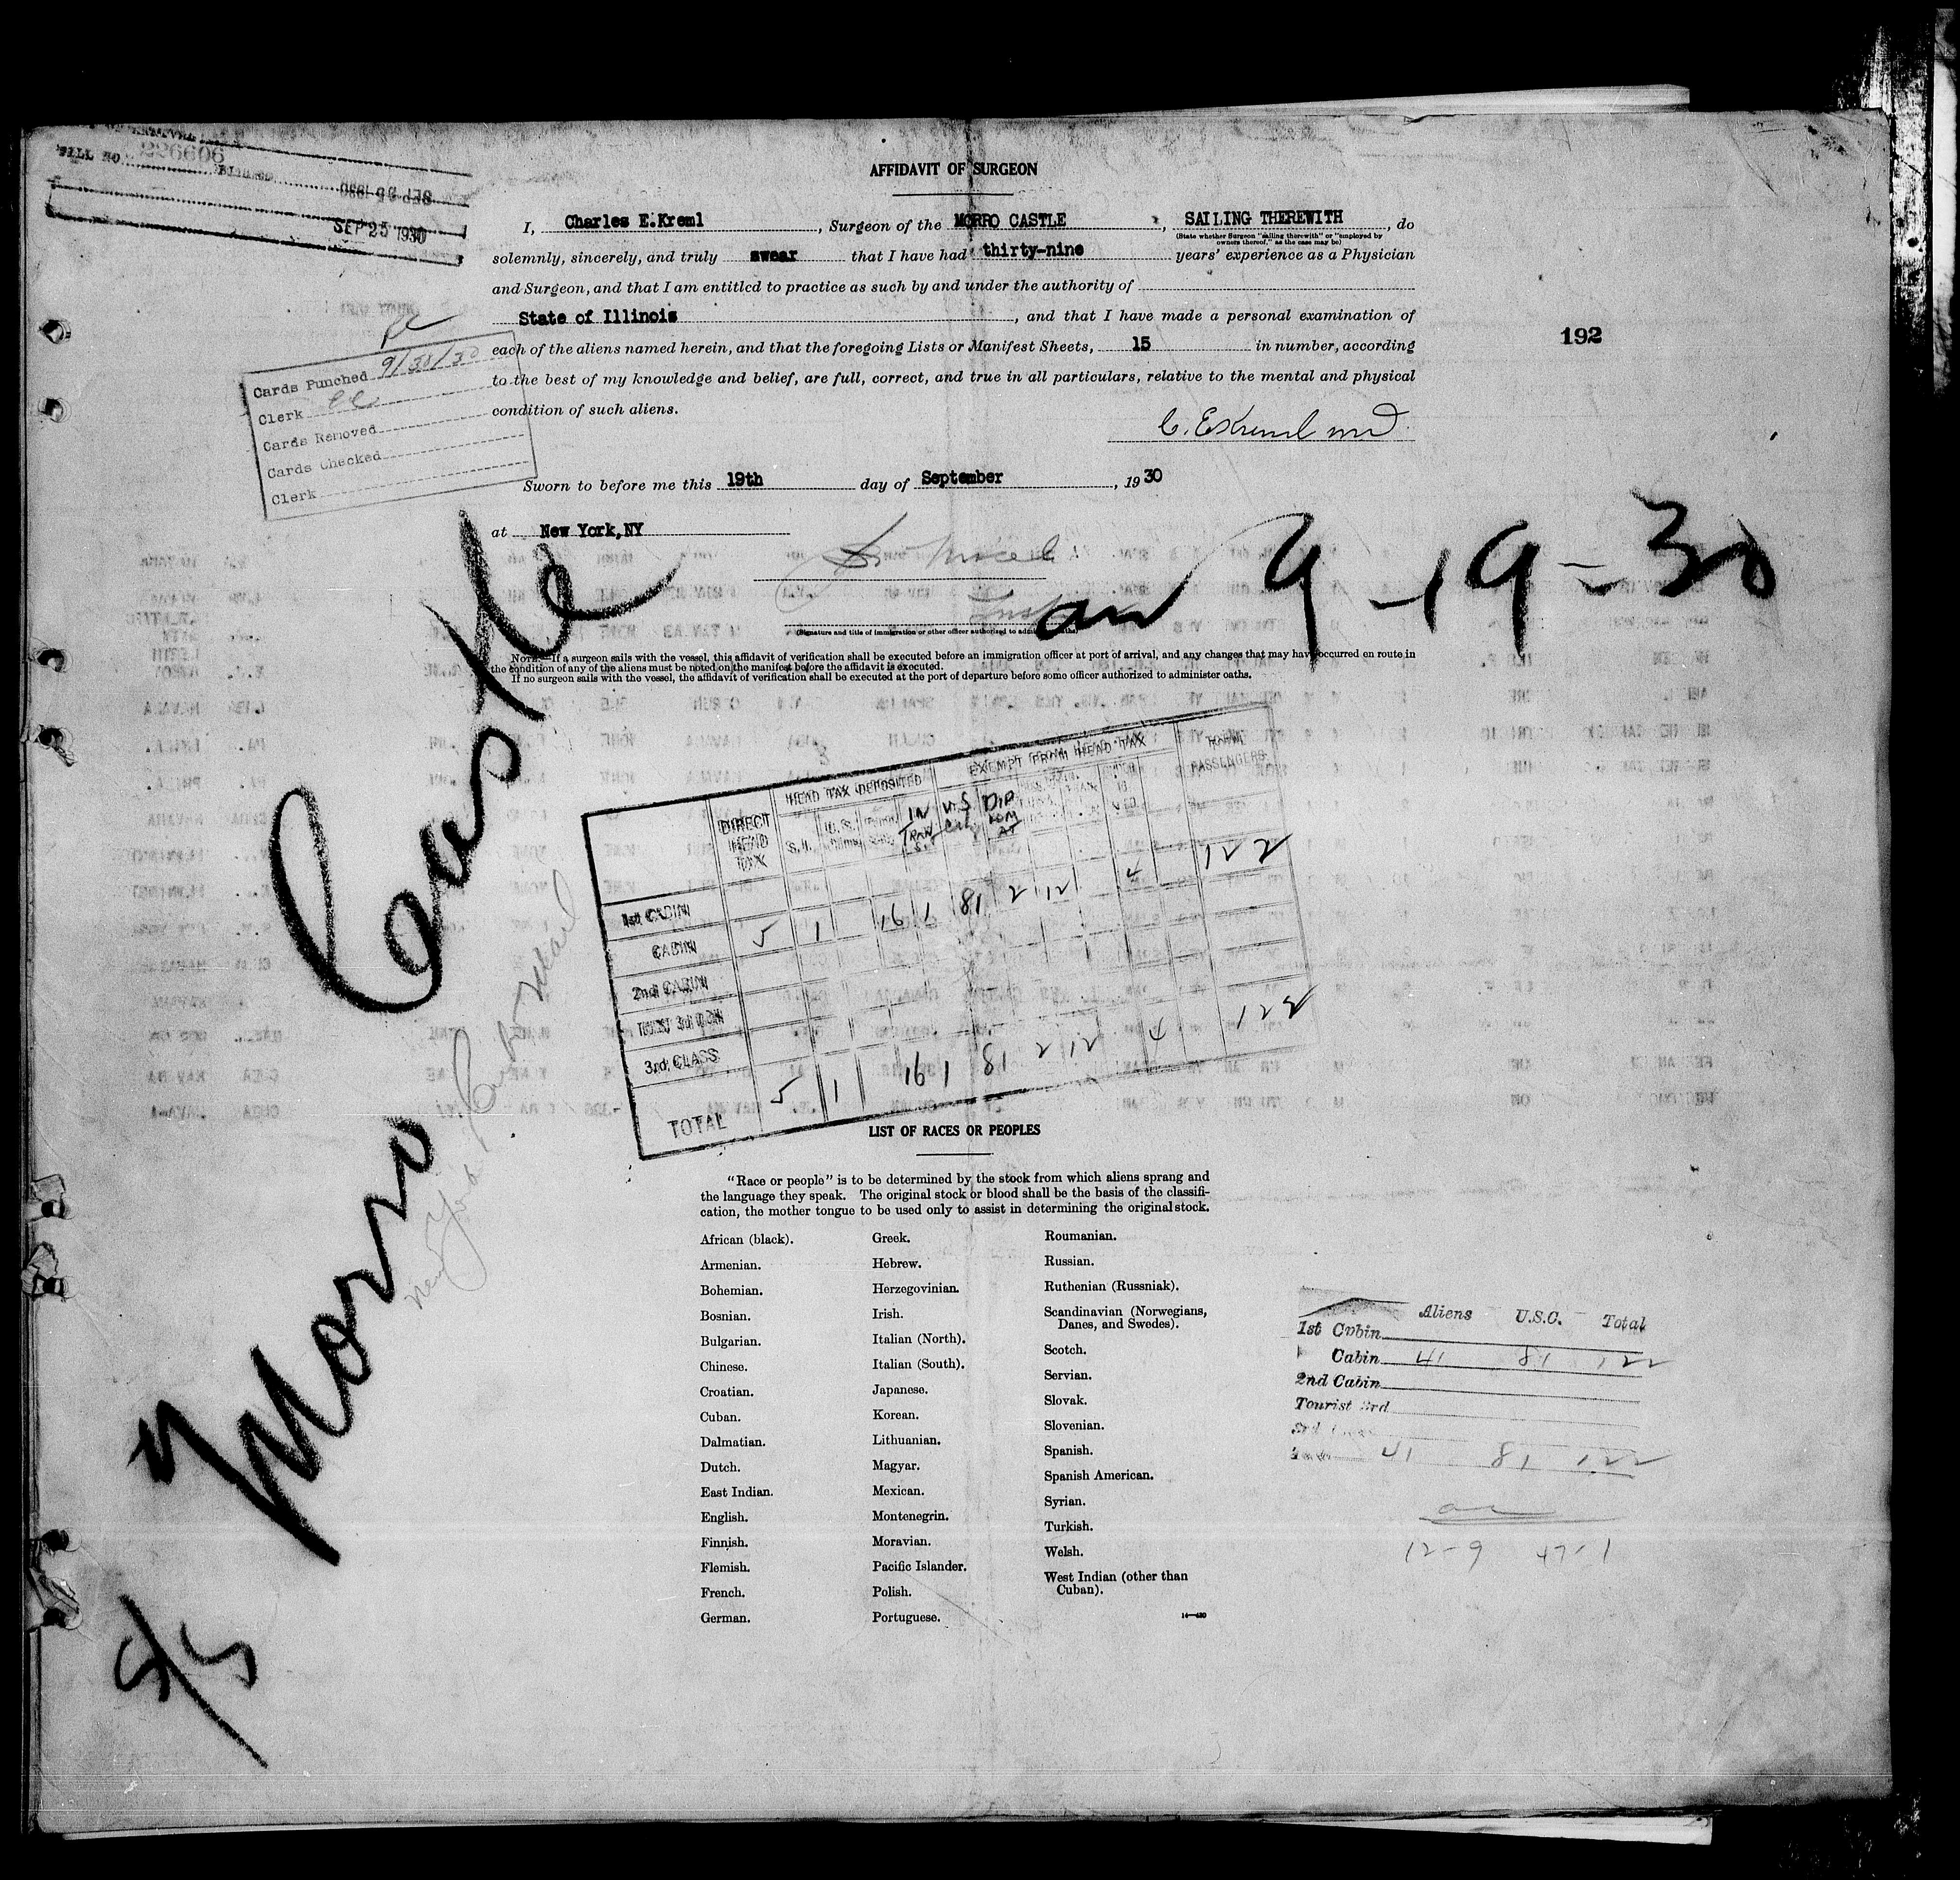 BILL NO. 226606
BILLED
SEP 25 1930
SEP 25 1930
AFFIDAVIT OF SURGEON
I, Charles E.Kreml, Surgeon of the MORRO CASTLE, SAILING THEREWITH, do
(State whether Surgeon "sailing therewith" or "employed by owners thereof," as the case may be)
solemnly, sincerely, and truly swear that I have had thirty-nine years' experience as a Physician
and Surgeon, and that I am entitled to practice as such by and under the authority of
State of Illinois, and that I have made a personal examination of
each of the aliens named herein, and that the foregoing Lists or Manifest Sheets, 15 in number, according
to the best of my knowledge and belief, are full, correct, and true in all particulars, relative to the mental and physical
condition of such aliens.
C. E. Kreml MD.
192
Cards Punched 9/30/30
Clerk
Cards Removed
Cards Checked
Clerk
Sworn to before me this 19th day of September, 1930
at New York, NY
Insp
(Signature and title of immigration or other officer authorized to administer oaths)
arr 9-19-30
NOTE.—If a surgeon sails with the vessel, this affidavit of verification shall be executed before an immigration officer at port of arrival, and any changes that may have occurred en route in
the condition of any of the aliens must be noted on the manifest before the affidavit is executed.
If no surgeon sails with the vessel, the affidavit of verification shall be executed at the port of departure before some officer authorized to administer oaths.
S/S Morro Castle
HEAD TAX DEPOSITED EXEMPT FROM HEAD TAX TOTAL PASSENGERS
DIRECT HEAD TAX S.I. U.S. IN TRANSIT U.S. DIPLOMAT
1st CABIN
CABIN 5 1 16 1 81 2 12 4 122
2nd CABIN
TOURIST 3rd CABIN
3rd CLASS
TOTAL 5 1 16 1 81 2 12 4 122
LIST OF RACES OR PEOPLES
"Race or people" is to be determined by the stock from which aliens sprang and
the language they speak. The original stock or blood shall be the basis of the classifi-
cation, the mother tongue to be used only to assist in determining the original stock.
African (black).
Armenian.
Bohemian.
Bosnian.
Bulgarian.
Chinese.
Croatian.
Cuban.
Dalmatian.
Dutch.
East Indian.
English.
Finnish.
Flemish.
French.
German.
Greek.
Hebrew.
Herzegovinian.
Irish.
Italian (North).
Italian (South).
Japanese.
Korean.
Lithuanian.
Magyar.
Mexican.
Montenegrin.
Moravian.
Pacific Islander.
Polish.
Portuguese.
Roumanian.
Russian.
Ruthenian (Russniak).
Scandinavian (Norwegians,
Danes, and Swedes).
Scotch.
Servian.
Slovak.
Slovenian.
Spanish.
Spanish American.
Syrian.
Turkish.
Welsh.
West Indian (other than
Cuban).
14—430
Aliens U.S.C. Total
1st Cabin
Cabin 41 81 122
2nd Cabin
Tourist 3rd
41 81 122
12-9 47-1